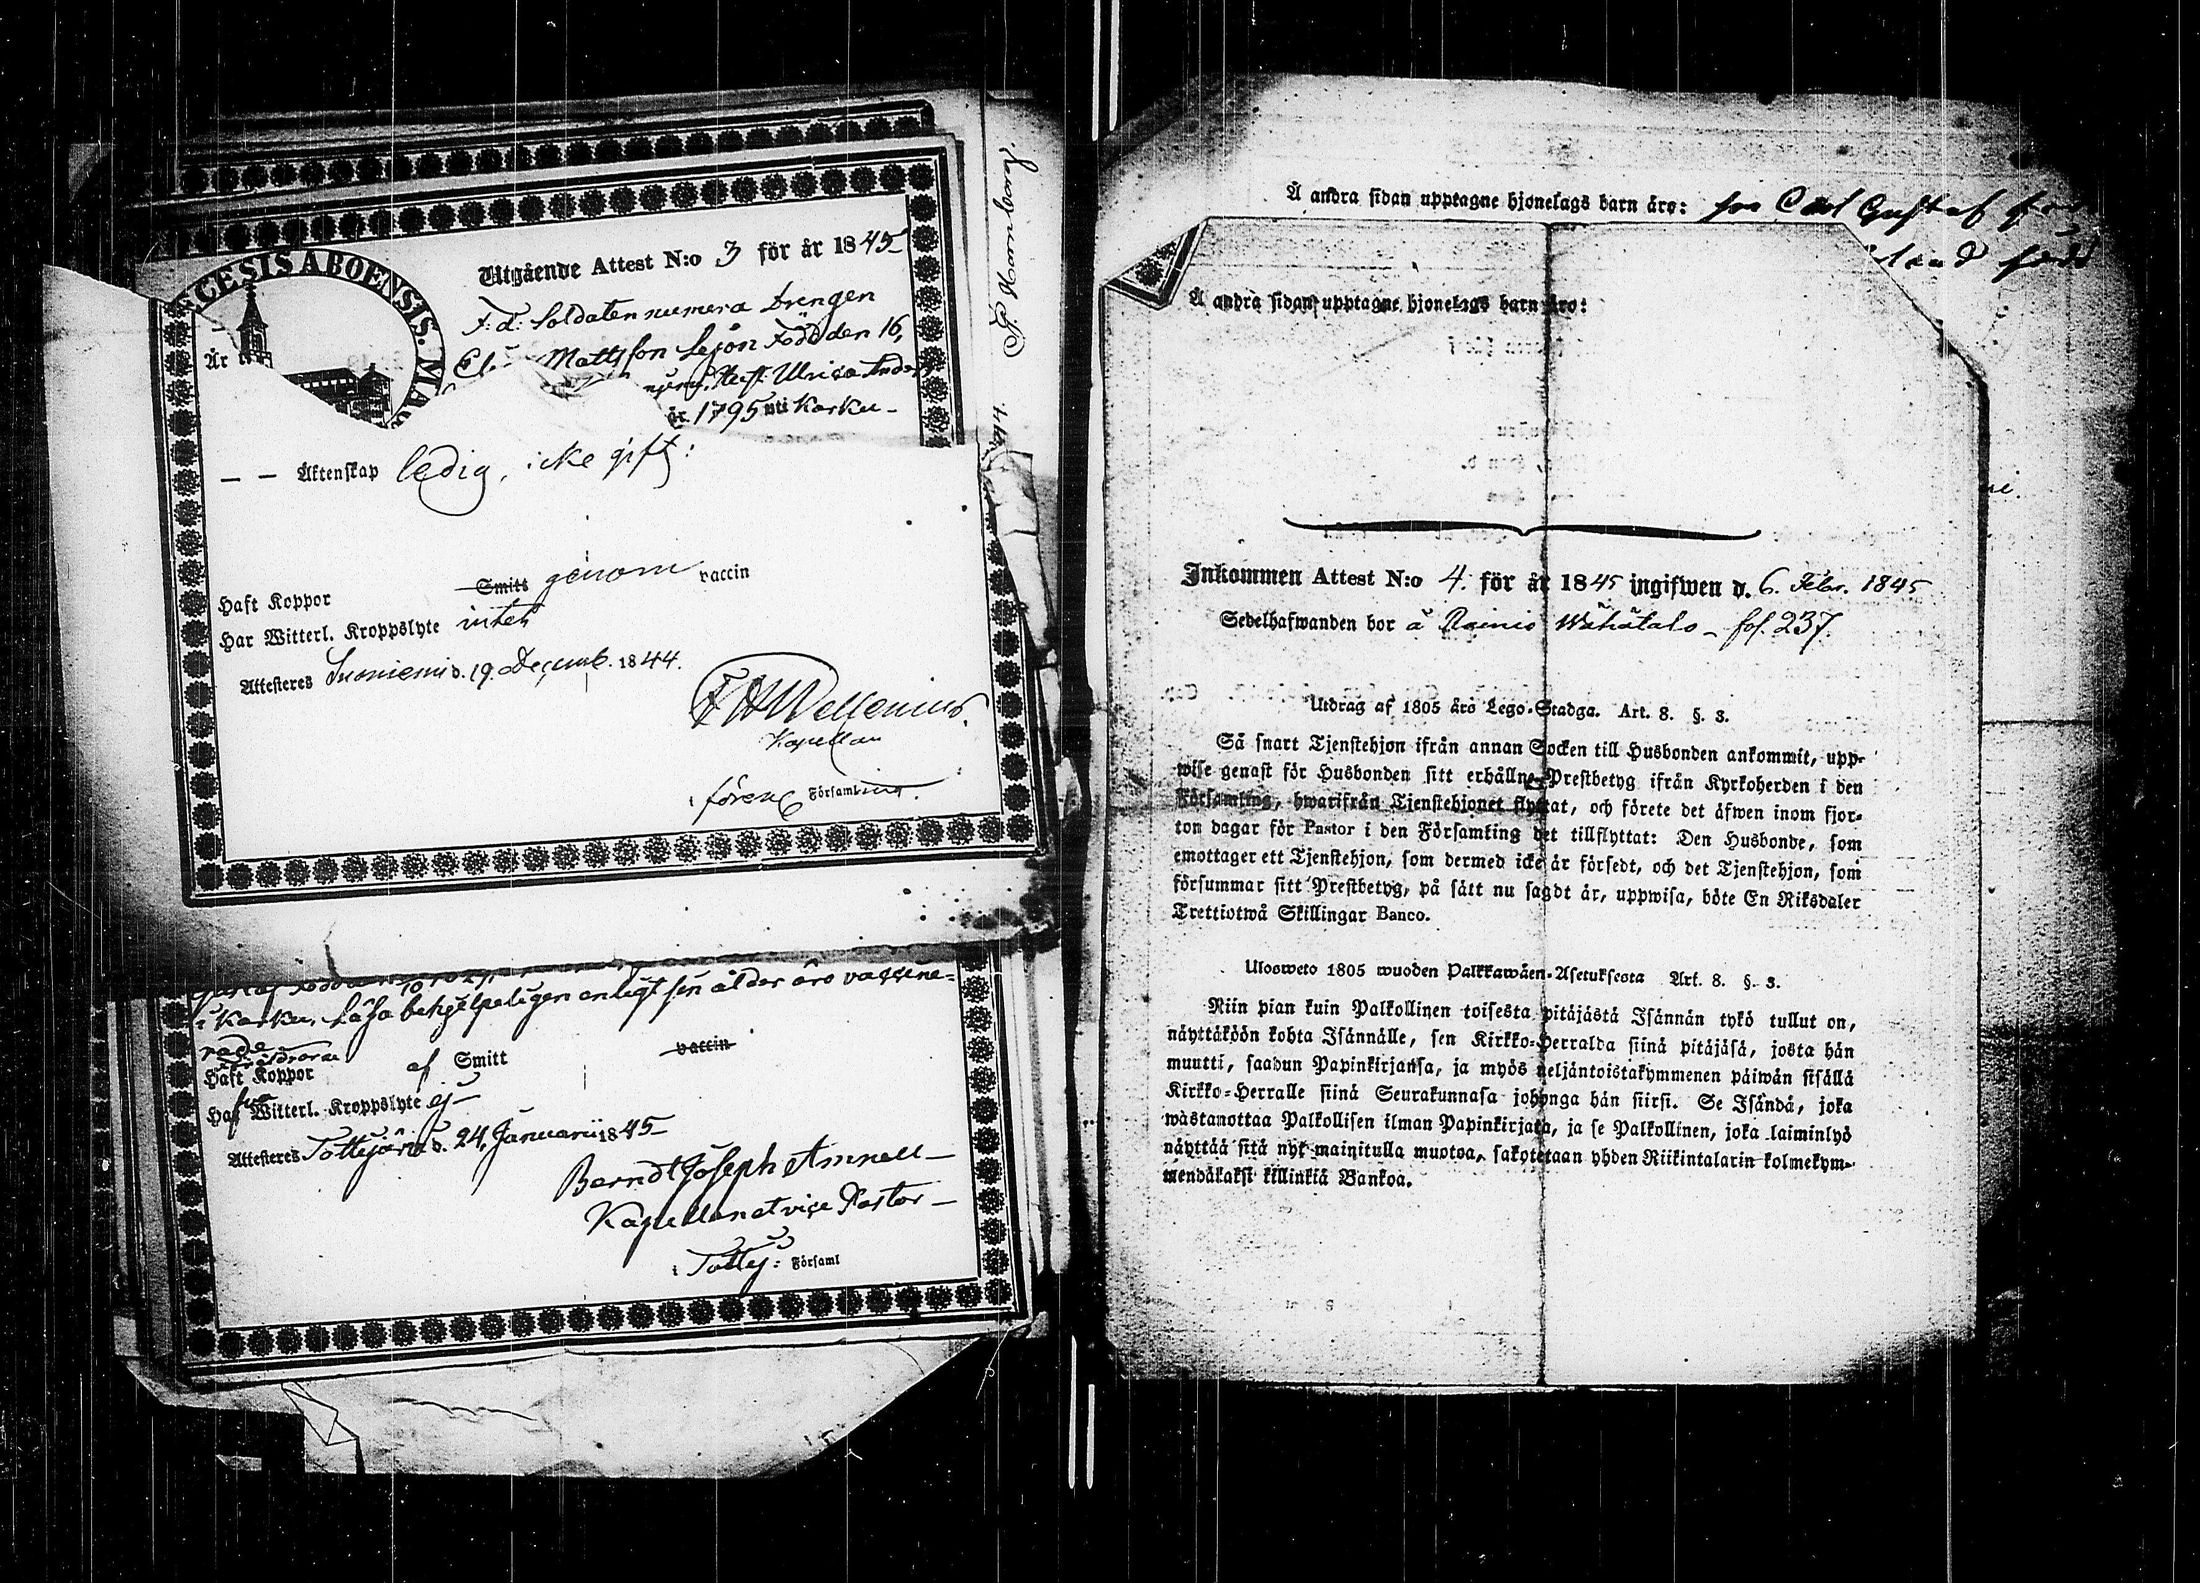 EGESIS ABOENSIS. MA
Utgående Attest N:o 3 för år 1845
F: d: Soldaten numera Drengen
Mattsson Lejon Född den 16,
Hust: Ulrica Anders
år 1795 uti Karku -
År
— — Äktenskap ledig, icke gift:
Haft Koppor Smitt genom vaccin
Har Witterl. Kroppslyte intet
Attesteres Suoniemi d. 19. Decemb. 1844.
F W Wellenius.
Kapellan
i förens Församling.
Gustaf Född den 10
i Karku. Läsa behjelpeligen enligt sin ålder äro vaccine-
rade
Föräldrarne
Haft Koppor af Smitt vaccin
Witterl. Kroppslyte ej —
Attesteres Tottijärvi d. 24, Januarii 1845 —
Berndt Joseph Amnell —
Kapellan et vice Pastor —
i Tottij: Församl
Å andra sidan upptagne hjonelags barn äro: son Carl Gustaf
född
Å andra sidan upptagne hjonelags barn äro:
Inkommen Attest N:o 4. för år 1845 ingifwen d. 6. Febr. 1845
Sedelhafwanden bor å Rainio Wähätalo — fol. 237.
Utdrag af 1805 års Lego-Stadga. Art. 8. §. 3.
Så snart Tjenstehjon ifrån annan Socken till Husbonden ankommit, upp-
wise genast för Husbonden sitt erhållne Prestbetyg ifrån Kyrkoherden i den
Församling, hwarifrån Tjenstehjonet flyttat, och förete det äfwen inom fjor-
ton dagar för Pastor i den Församling det tillflyttat: Den Husbonde, som
emottager ett Tjenstehjon, som dermed icke är försedt, och det Tjenstehjon, som
försummar sitt Prestbetyg, på sätt nu sagdt är, uppwisa, böte En Riksdaler
Trettiotwå Skillingar Banco.
Ulosweto 1805 wuoden Palkkawäen-Asetuksesta Art. 8. §. 3.
Niin pian kuin Palkollinen toisesta pitäjästä Isännän tykö tullut on,
näyttäköön kohta Isännälle, sen Kirkko-Herralda siinä pitäjäsä, josta hän
muutti, saadun Papinkirjansa, ja myös neljäntoistakymmenen päiwän sisällä
Kirkko-Herralle siinä Seurakunnasa johonga hän siirsi. Se Isändä, joka
wastanottaa Palkollisen ilman Papinkirjata, ja se Palkollinen, joka laiminlyö
näyttää sitä nyt mainitulla muotoa, sakotetaan yhden Riikintalarin kolmekym-
mendäkaksi killinkiä Bankoa.